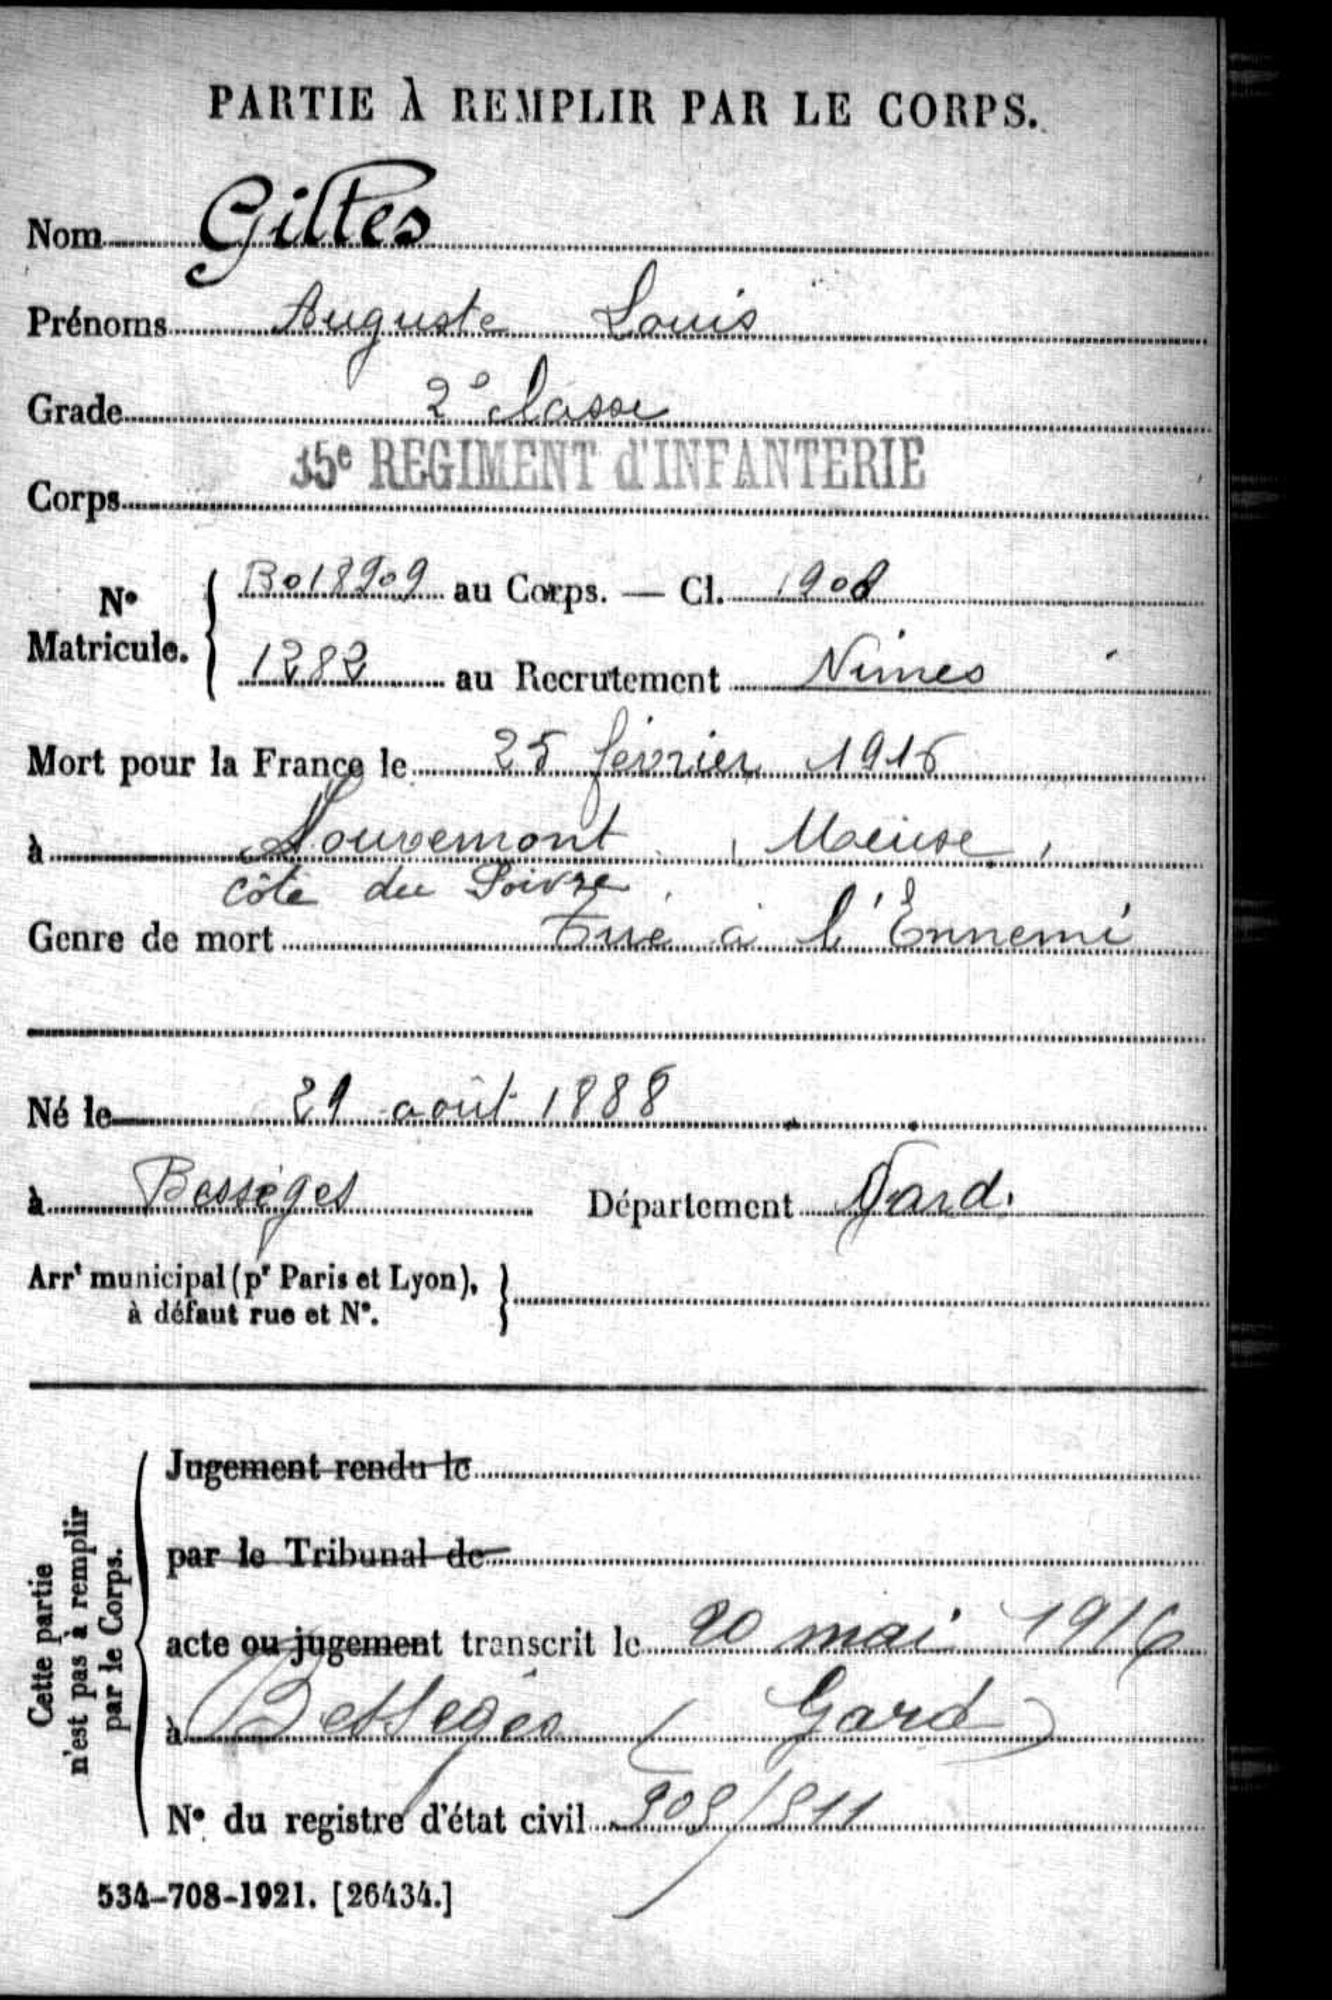 PARTIE À REMPLIR PAR LE CORPS.
Nom Gilles
Prénoms Auguste Louis
Grade 2e classe
Corps 35e REGIMENT d'INFANTERIE
No Matricule. B018909 au Corps. — Cl. 1908
1282 au Recrutement Nimes
Mort pour la France le 25 février 1916
à Louvemont, Meuse,
côte du Poivre
Genre de mort Tué à l'Ennemi
Né le 29 août 1888
à Bessèges Département Gard.
Arrt municipal (pr Paris et Lyon),
à défaut rue et No.
Cette partie
n'est pas à remplir
par le Corps.
Jugement rendu le
par le Tribunal de
acte ou jugement transcrit le 20 mai 1916
à Bessèges (Gard)
No du registre d'état civil
534-708-1921. [26434.]